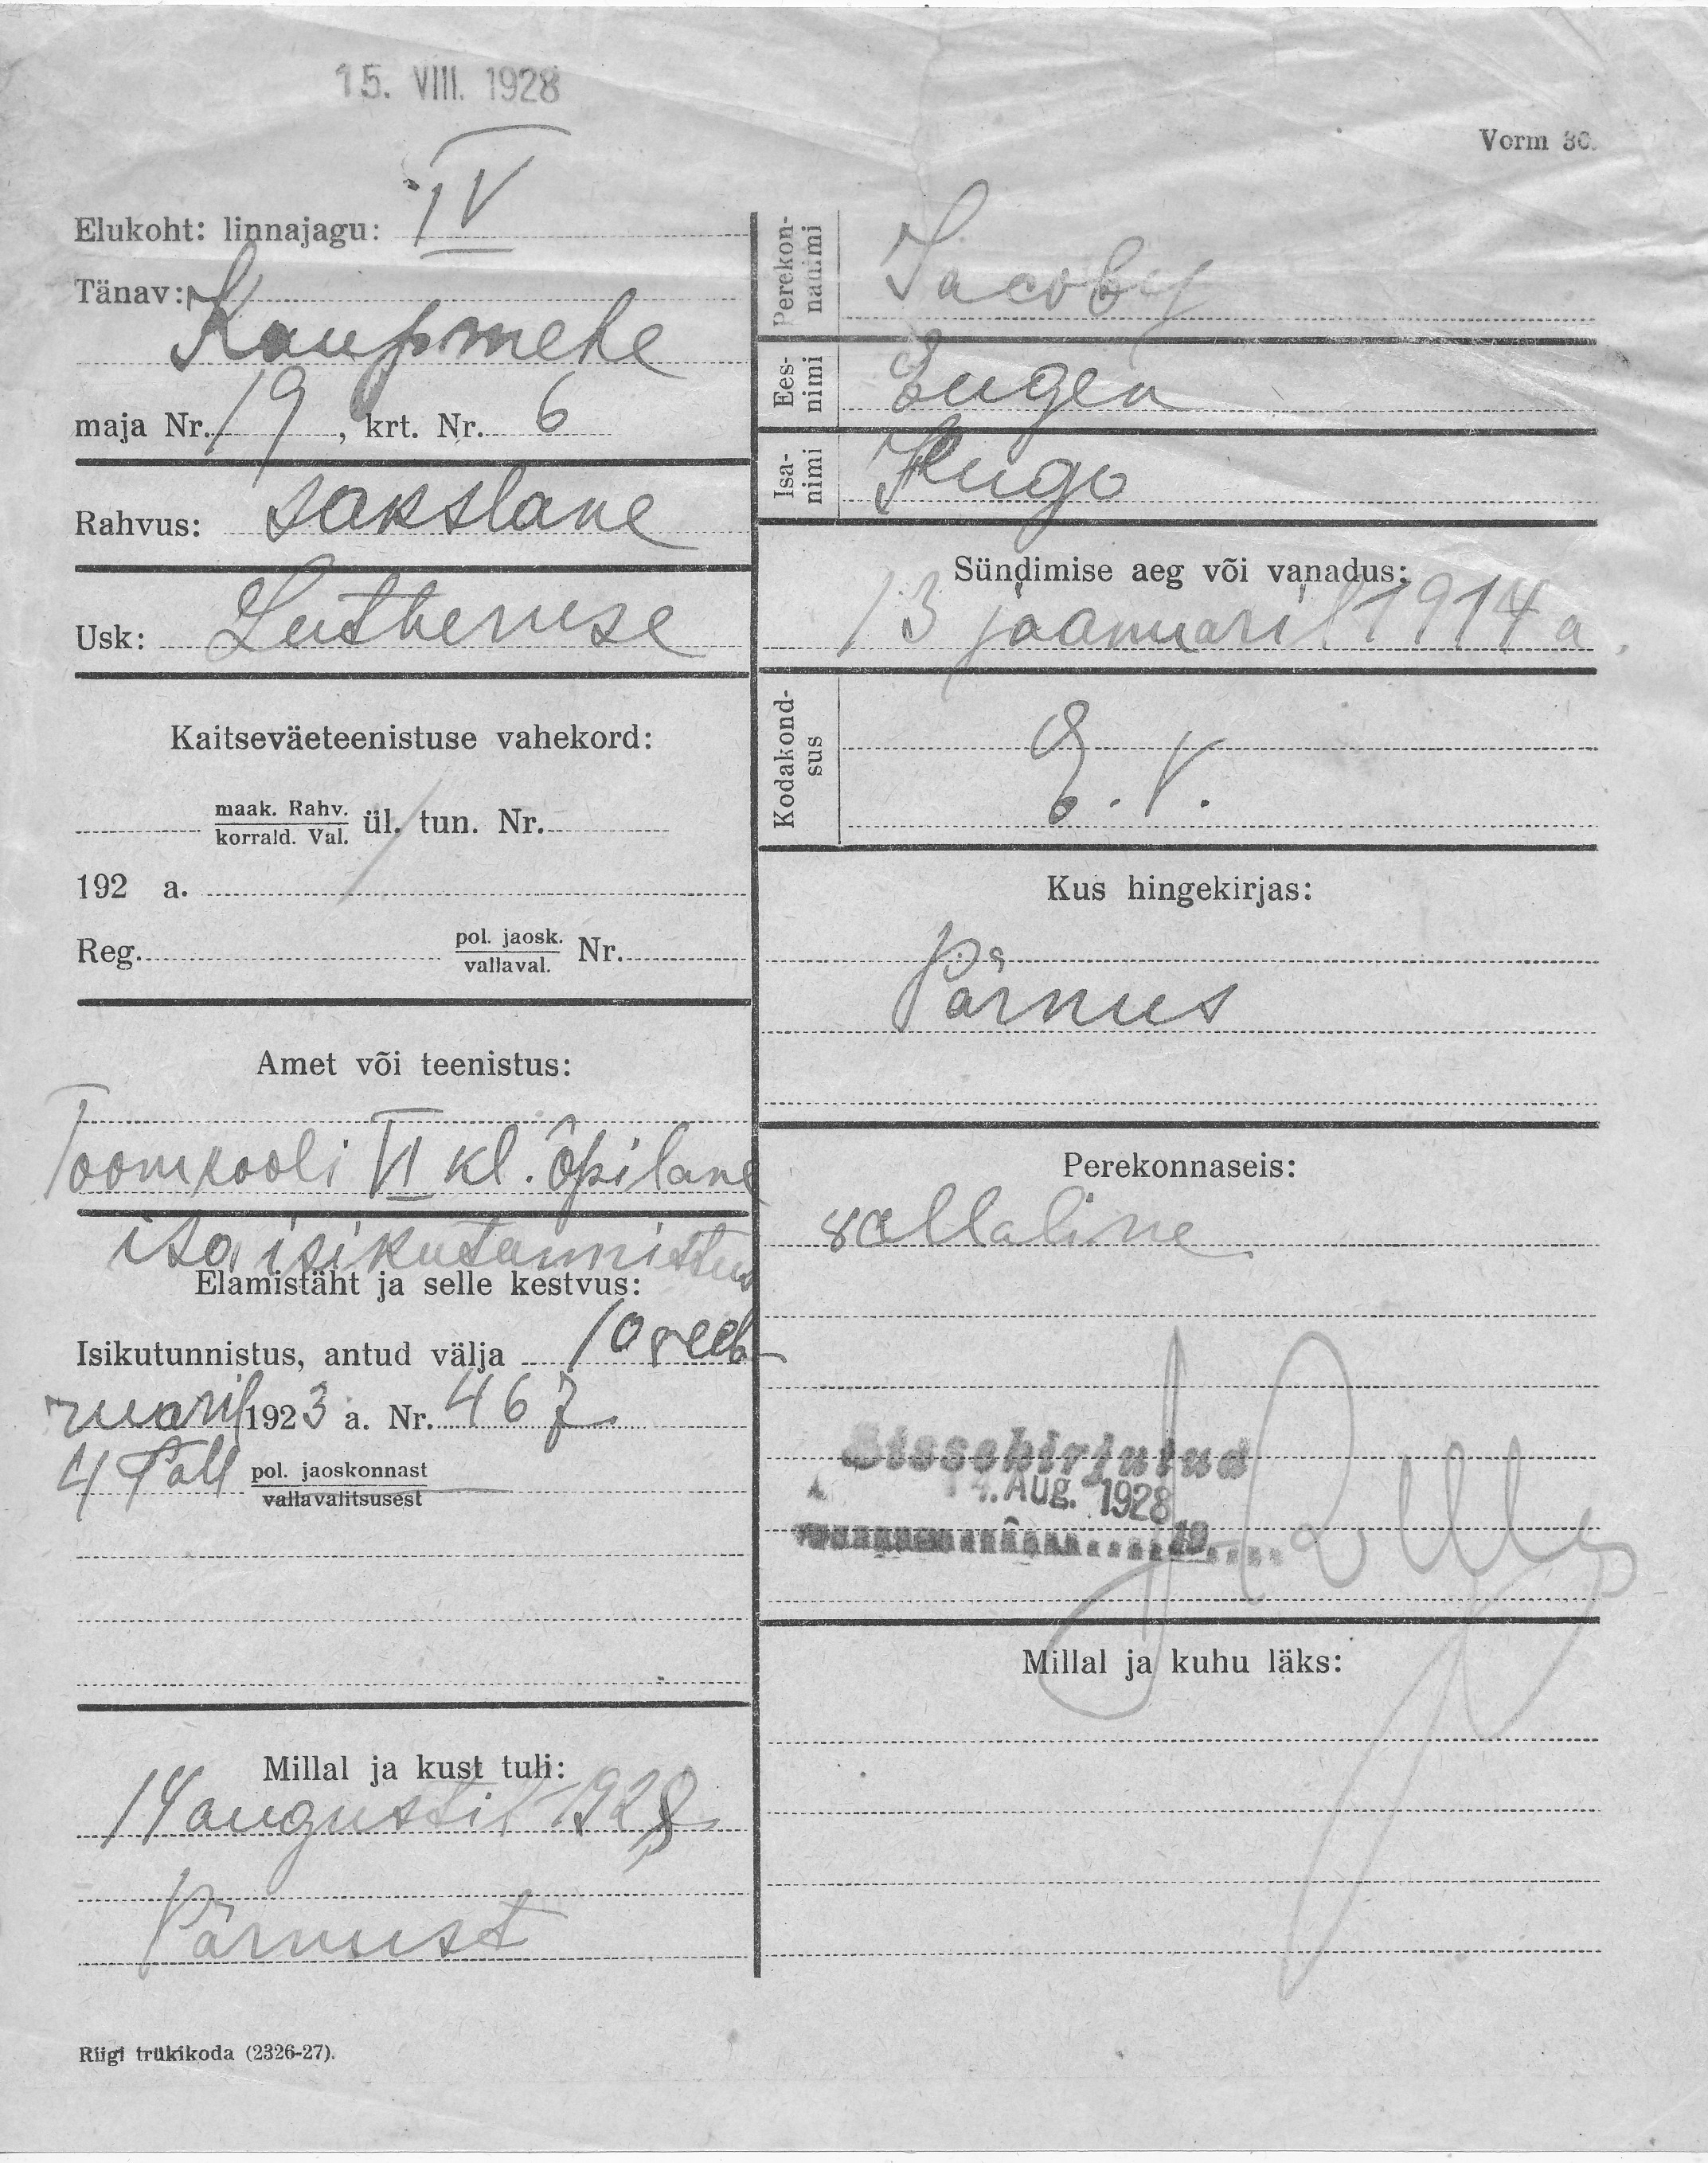 15. VIII. 1928
Vorm 30.
Elukoht: linnajagu: IV
Tänav:
Kaupmehe
maja Nr. 19, krt. Nr. 6
Rahvus: sakslane
Usk: Lutheruse
Kaitseväeteenistuse vahekord:
maak. Rahv.
korrald. Val. ül. tun. Nr.
192 a.
Reg. pol. jaosk.
vallaval. Nr.
Amet või teenistus:
Toomkooli VI kl. õpilane
isa isikutunnistus
Elamistäht ja selle kestvus:
Isikutunnistus, antud välja 10 veeb-
ruaril 1923 a. Nr. 467
4 Tall pol. jaoskonnast
vallavalitsusest
Millal ja kust tuli:
14 augustil 1928
Pärnust
Riigi trükikoda (2326-27).
Perekon-
nanimi Jacoby
Ees-
nimi Eugen
Isa-
nimi Hugo
Sündimise aeg või vanadus:
13 jaanuaril 1914 a.
Kodakond-
sus E. V.
Kus hingekirjas:
Pärnus
Perekonnaseis:
vallaline
Sissekirjutud
Aug. 1928
19
Millal ja kuhu läks: